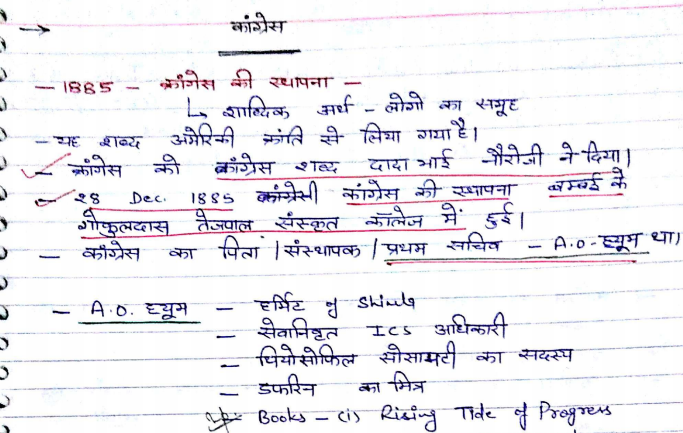 → कांग्रेस
— 1885 - कांग्रेस की स्थापना —
↳ शाब्दिक अर्थ - लोगो का समूह
- यह शब्द अमेरिकी क्रांति से लिया गया है।
- कांग्रेस को कांग्रेस शब्द दादा भाई नौरोजी ने दिया।
- 28 Dec. 1885 कांग्रेसी कांग्रेस की स्थापना बम्बई के
गोकुलदास तेजपाल संस्कृत कॉलेज में हुई।
- कांग्रेस का पिता / संस्थापक / प्रथम सचिव - A.O. ह्यूम था।
- A.O. ह्यूम - हर्मिट of Shimla
- सेवानिवृत ICS अधिकारी
- थियोसोफिल सोसायटी का सदस्य
- डफरिन का मित्र
Books - (i) Rising Tide of Progress